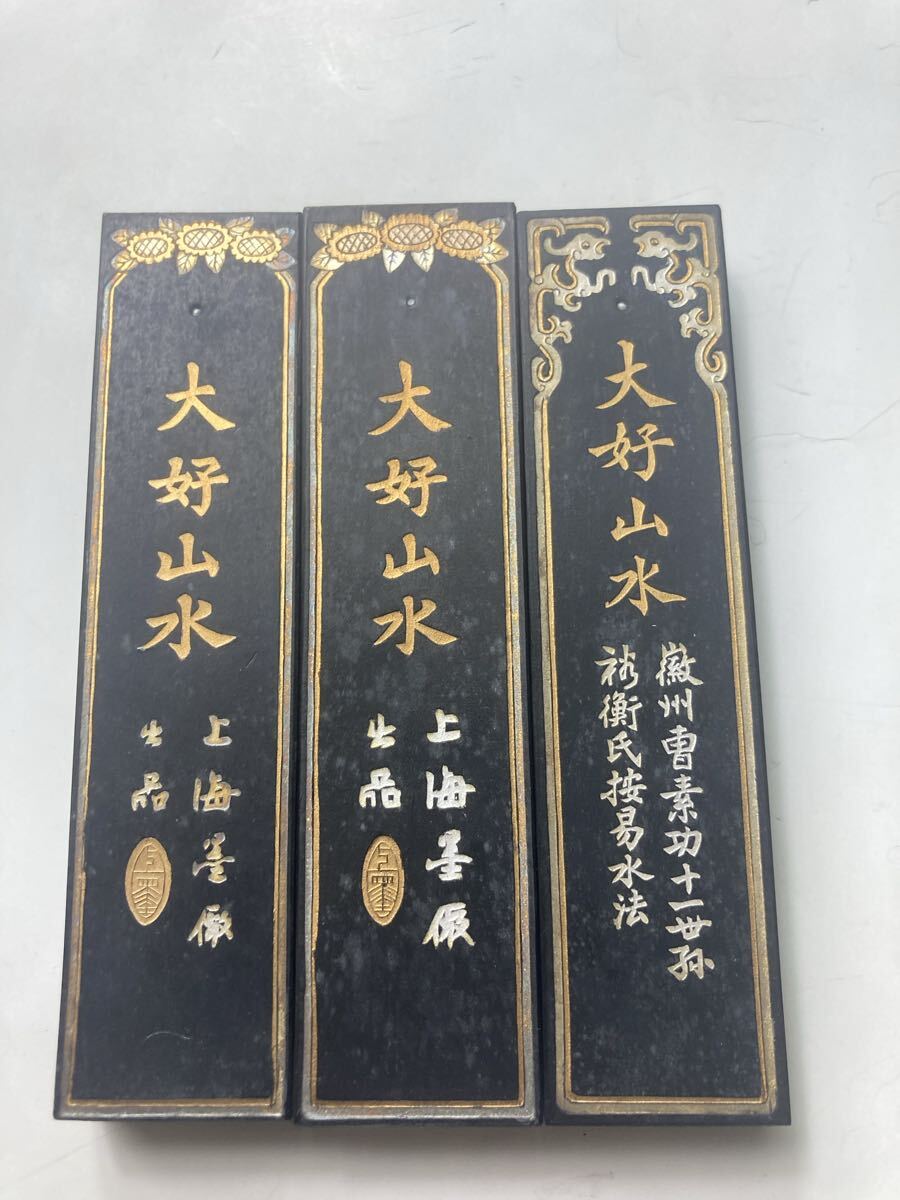 大好山水
上海墨厰
出品
大好山水
上海墨厰
出品
大好山水
徽州曹素功十一世孙
裕衡氏按易水法